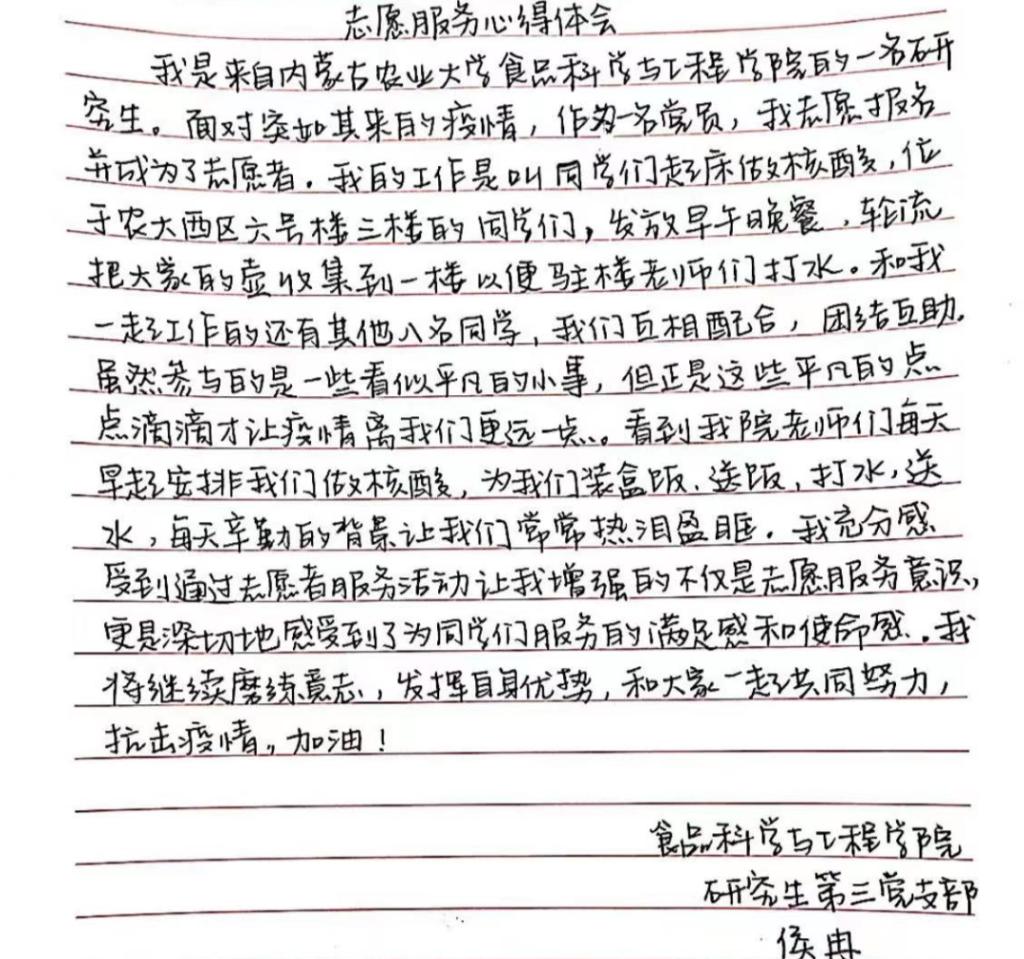 志愿服务心得体会
我是来自内蒙古农业大学食品科学与工程学院的一名研
究生。面对突如其来的疫情，作为一名党员，我志愿报名
并成为了志愿者。我的工作是叫同学们起床做核酸，位
于农大西区六号楼三楼的同学们，发放早午晚餐，轮流
把大家的壶收集到一楼以便驻楼老师们打水。和我
一起工作的还有其他八名同学，我们互相配合，团结互助。
虽然参与的是一些看似平凡的小事，但正是这些平凡的点
点滴滴才让疫情离我们更远一点。看到我院老师们每天
早起安排我们做核酸，为我们装盒饭、送饭，打水，送
水，每天辛勤的背景让我们常常热泪盈眶。我充分感
受到通过志愿者服务活动让我增强的不仅是志愿服务意识，
更是深切地感受到了为同学们服务的满足感和使命感。我
将继续磨练意志，发挥自身优势，和大家一起共同努力，
抗击疫情，加油！
食品科学与工程学院
研究生第三党支部
侯冉